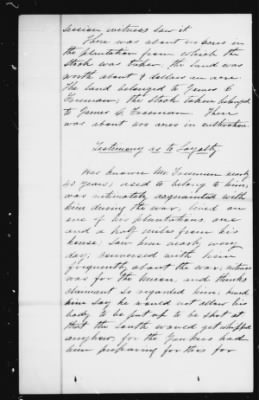 session witness saw it
There was about acres in
the plantation from which the
stock was taken, the land was
worth about dollars an acre.
The land belonged to James C
Freeman; the stock taken belonged
to James C. Freeman. There
was about 200 acres in cultivation
Testimony as to Loyalty
Has known Mr. Freeman nearly
40 years; used to belong to him;
was intimately acquainted with
him during the war. lived on
one of his plantations one
and a half miles from his
house; saw him nearly every
day; conversed with him
frequently about the war; witness
was for the Union and thinks
claimant so regarded him; heard
him say he would not allow his
body to be put up to be shot at
that the South would get whipped
anyhow, for the Yankees had
been preparing for this for